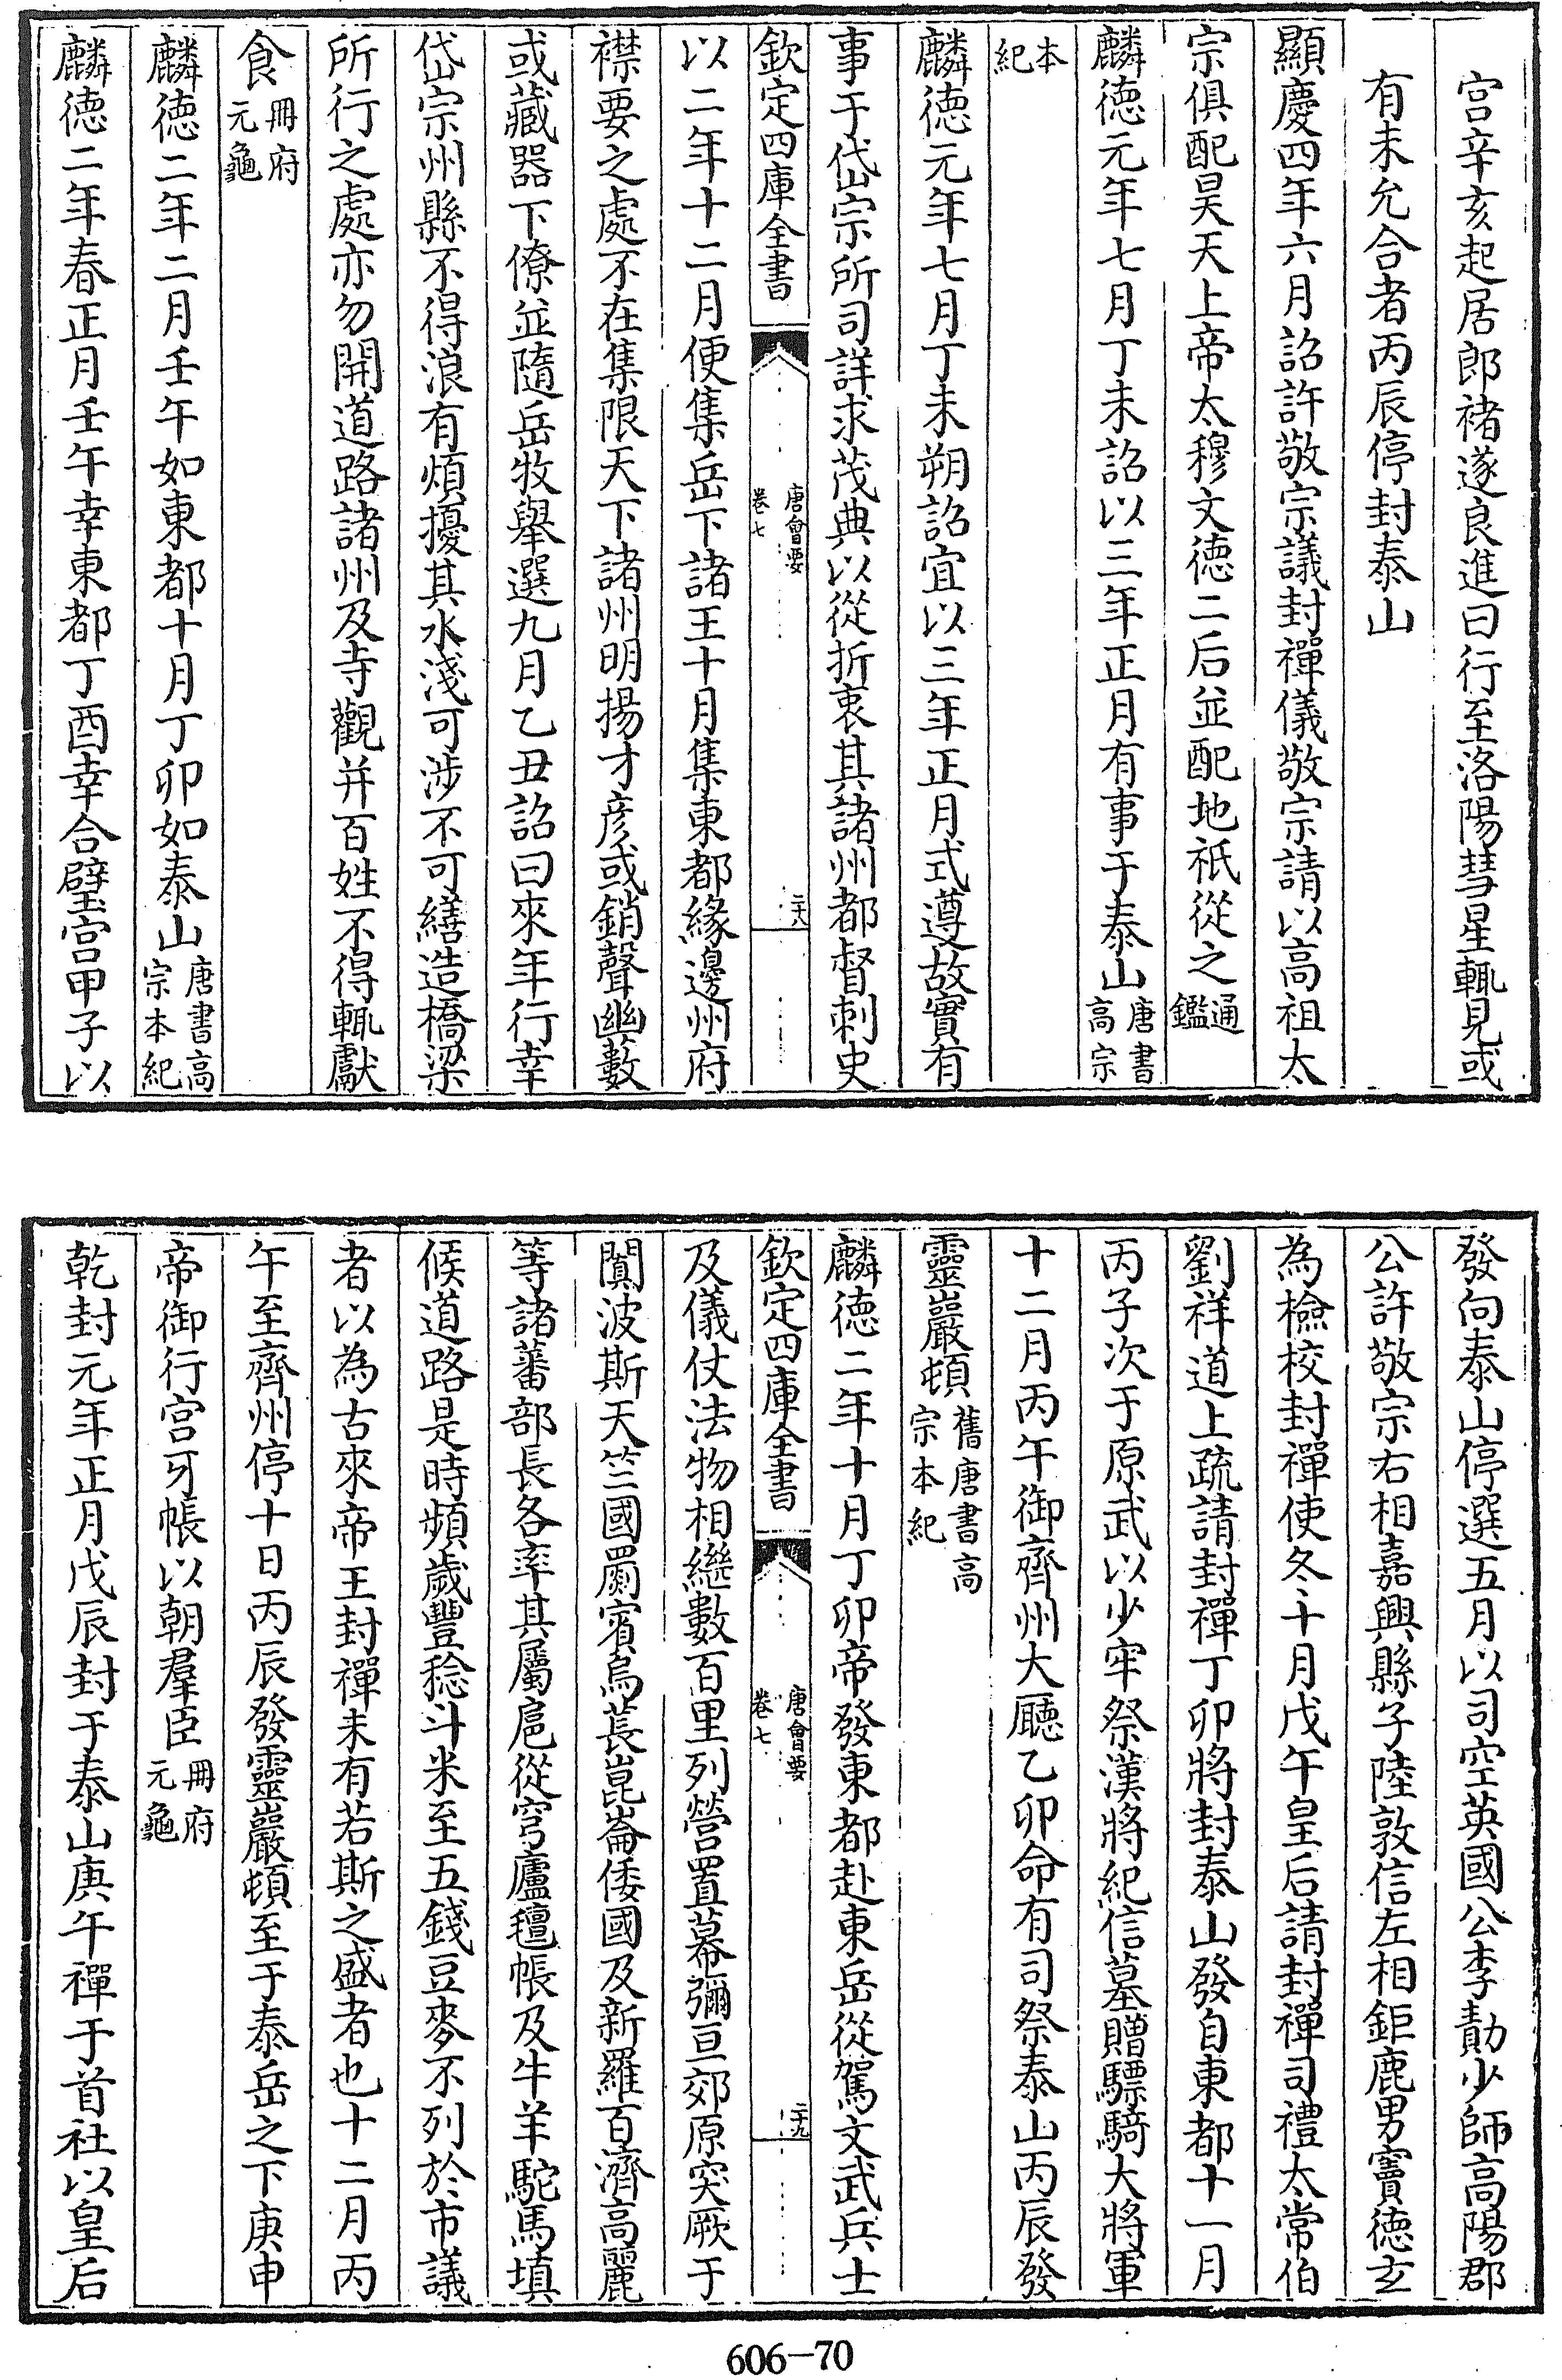 宫辛亥起居郎褚遂良進曰行至洛陽彗星輒見或
有未允合者丙辰停封泰山
顯慶四年六月詔許敬宗議封禪儀敬宗請以高祖太
宗俱配昊天上帝太穆文徳二后並配地祇從之通鑑
麟徳元年七月丁未詔以三年正月有事于泰山唐書高宗
本紀
麟徳元年七月丁未朔詔宜以三年正月式遵故實有
事于岱宗所司詳求茂典以從折衷其諸州都督刺史
欽定四庫全書 唐會要 卷七 二十八
以二年十二月便集岳下諸王十月集東都緣邊州府
襟要之處不在集限天下諸州明揚才彦或銷聲幽藪
或藏器下僚並隨岳牧舉選九月乙丑詔曰來年行幸
岱宗州縣不得浪有煩擾其水淺可涉不可繕造橋梁
所行之處亦勿開道路諸州及寺觀并百姓不得輒獻
食冊府元龜
麟徳二年二月壬午如東都十月丁卯如泰山唐書高宗本紀
麟徳二年春正月壬午幸東都丁酉幸合璧宫甲子以
發向泰山停選五月以司空英國公李勣少師高陽郡
公許敬宗右相嘉興縣子陸敦信左相鉅鹿男竇徳玄
為檢校封禪使冬十月戊午皇后請封禪司禮太常伯
劉祥道上疏請封禪丁卯將封泰山發自東都十一月
丙子次于原武以少牢祭漢將紀信墓贈驃騎大將軍
十二月丙午御齊州大廳乙卯命有司祭泰山丙辰發
靈巖頓舊唐書高宗本紀
麟徳二年十月丁卯帝發東都赴東岳從駕文武兵士
欽定四庫全書 唐會要 卷七 二十九
及儀仗法物相繼數百里列營置幕彌亘郊原突厥于
闐波斯天竺國罽賓烏萇崑崙倭國及新羅百濟高麗
等諸蕃部長各率其屬扈從穹廬氊帳及牛羊駝馬填
候道路是時頻歲豐稔斗米至五錢豆麥不列於市議
者以為古來帝王封禪未有若斯之盛者也十二月丙
午至齊州停十日丙辰發靈巖頓至于泰岳之下庚申
帝御行宫牙帳以朝羣臣冊府元龜
乾封元年正月戊辰封于泰山庚午禪于首社以皇后
606-70